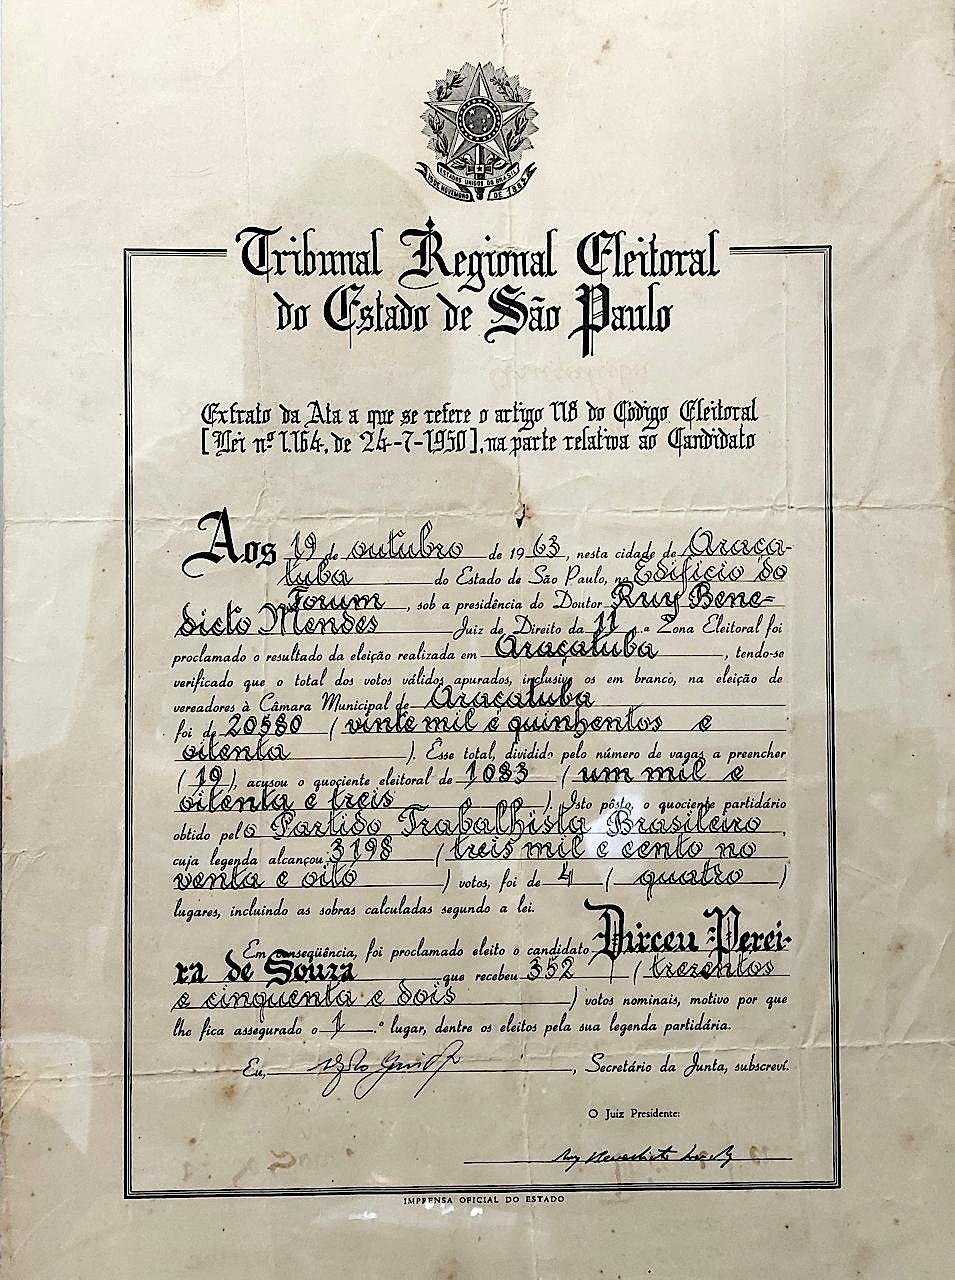 ESTADOS UNIDOS DO BRASIL
15 DE NOVEMBRO DE 1889
Tribunal Regional Eleitoral
do Estado de São Paulo
Extrato da Ata a que se refere o artigo 118 do Código Eleitoral
[Lei nº 1.164, de 24-7-1950], na parte relativa ao Candidato
Aos 19 de outubro de 1963, nesta cidade de Araça-
tuba do Estado de São Paulo, no Edificio do
Forum, sob a presidência do Doutor Ruy Bene=
dicto Mendes Juiz de Direito da 11.ª Zona Eleitoral foi
proclamado o resultado da eleição realizada em Araçatuba, tendo-se
verificado que o total dos votos válidos apurados, inclusive os em branco, na eleição de
vereadores à Câmara Municipal de Araçatuba
foi de 20580 (vinte mil e quinhentos e
oitenta). Êsse total, dividido pelo número de vagas a preencher
(19), acusou o quociente eleitoral de 1083 (um mil e
oitenta e treis). Isto pôsto, o quociente partidário
obtido pelo Partido Trabalhista Brasileiro,
cuja legenda alcançou 3198 (treis mil e cento no
venta e oito) votos, foi de 4 (quatro)
lugares, incluindo as sobras calculadas segundo a lei.
Em conseqüência, foi proclamado eleito o candidato Dirceu Perei-
ra de Souza que recebeu 352 (trezentos
e cinquenta e dois) votos nominais, motivo por que
lhe fica assegurado o 1.º lugar, dentre os eleitos pela sua legenda partidária.
Eu, , Secretário da Junta, subscreví.
O Juiz Presidente:
IMPRENSA OFICIAL DO ESTADO